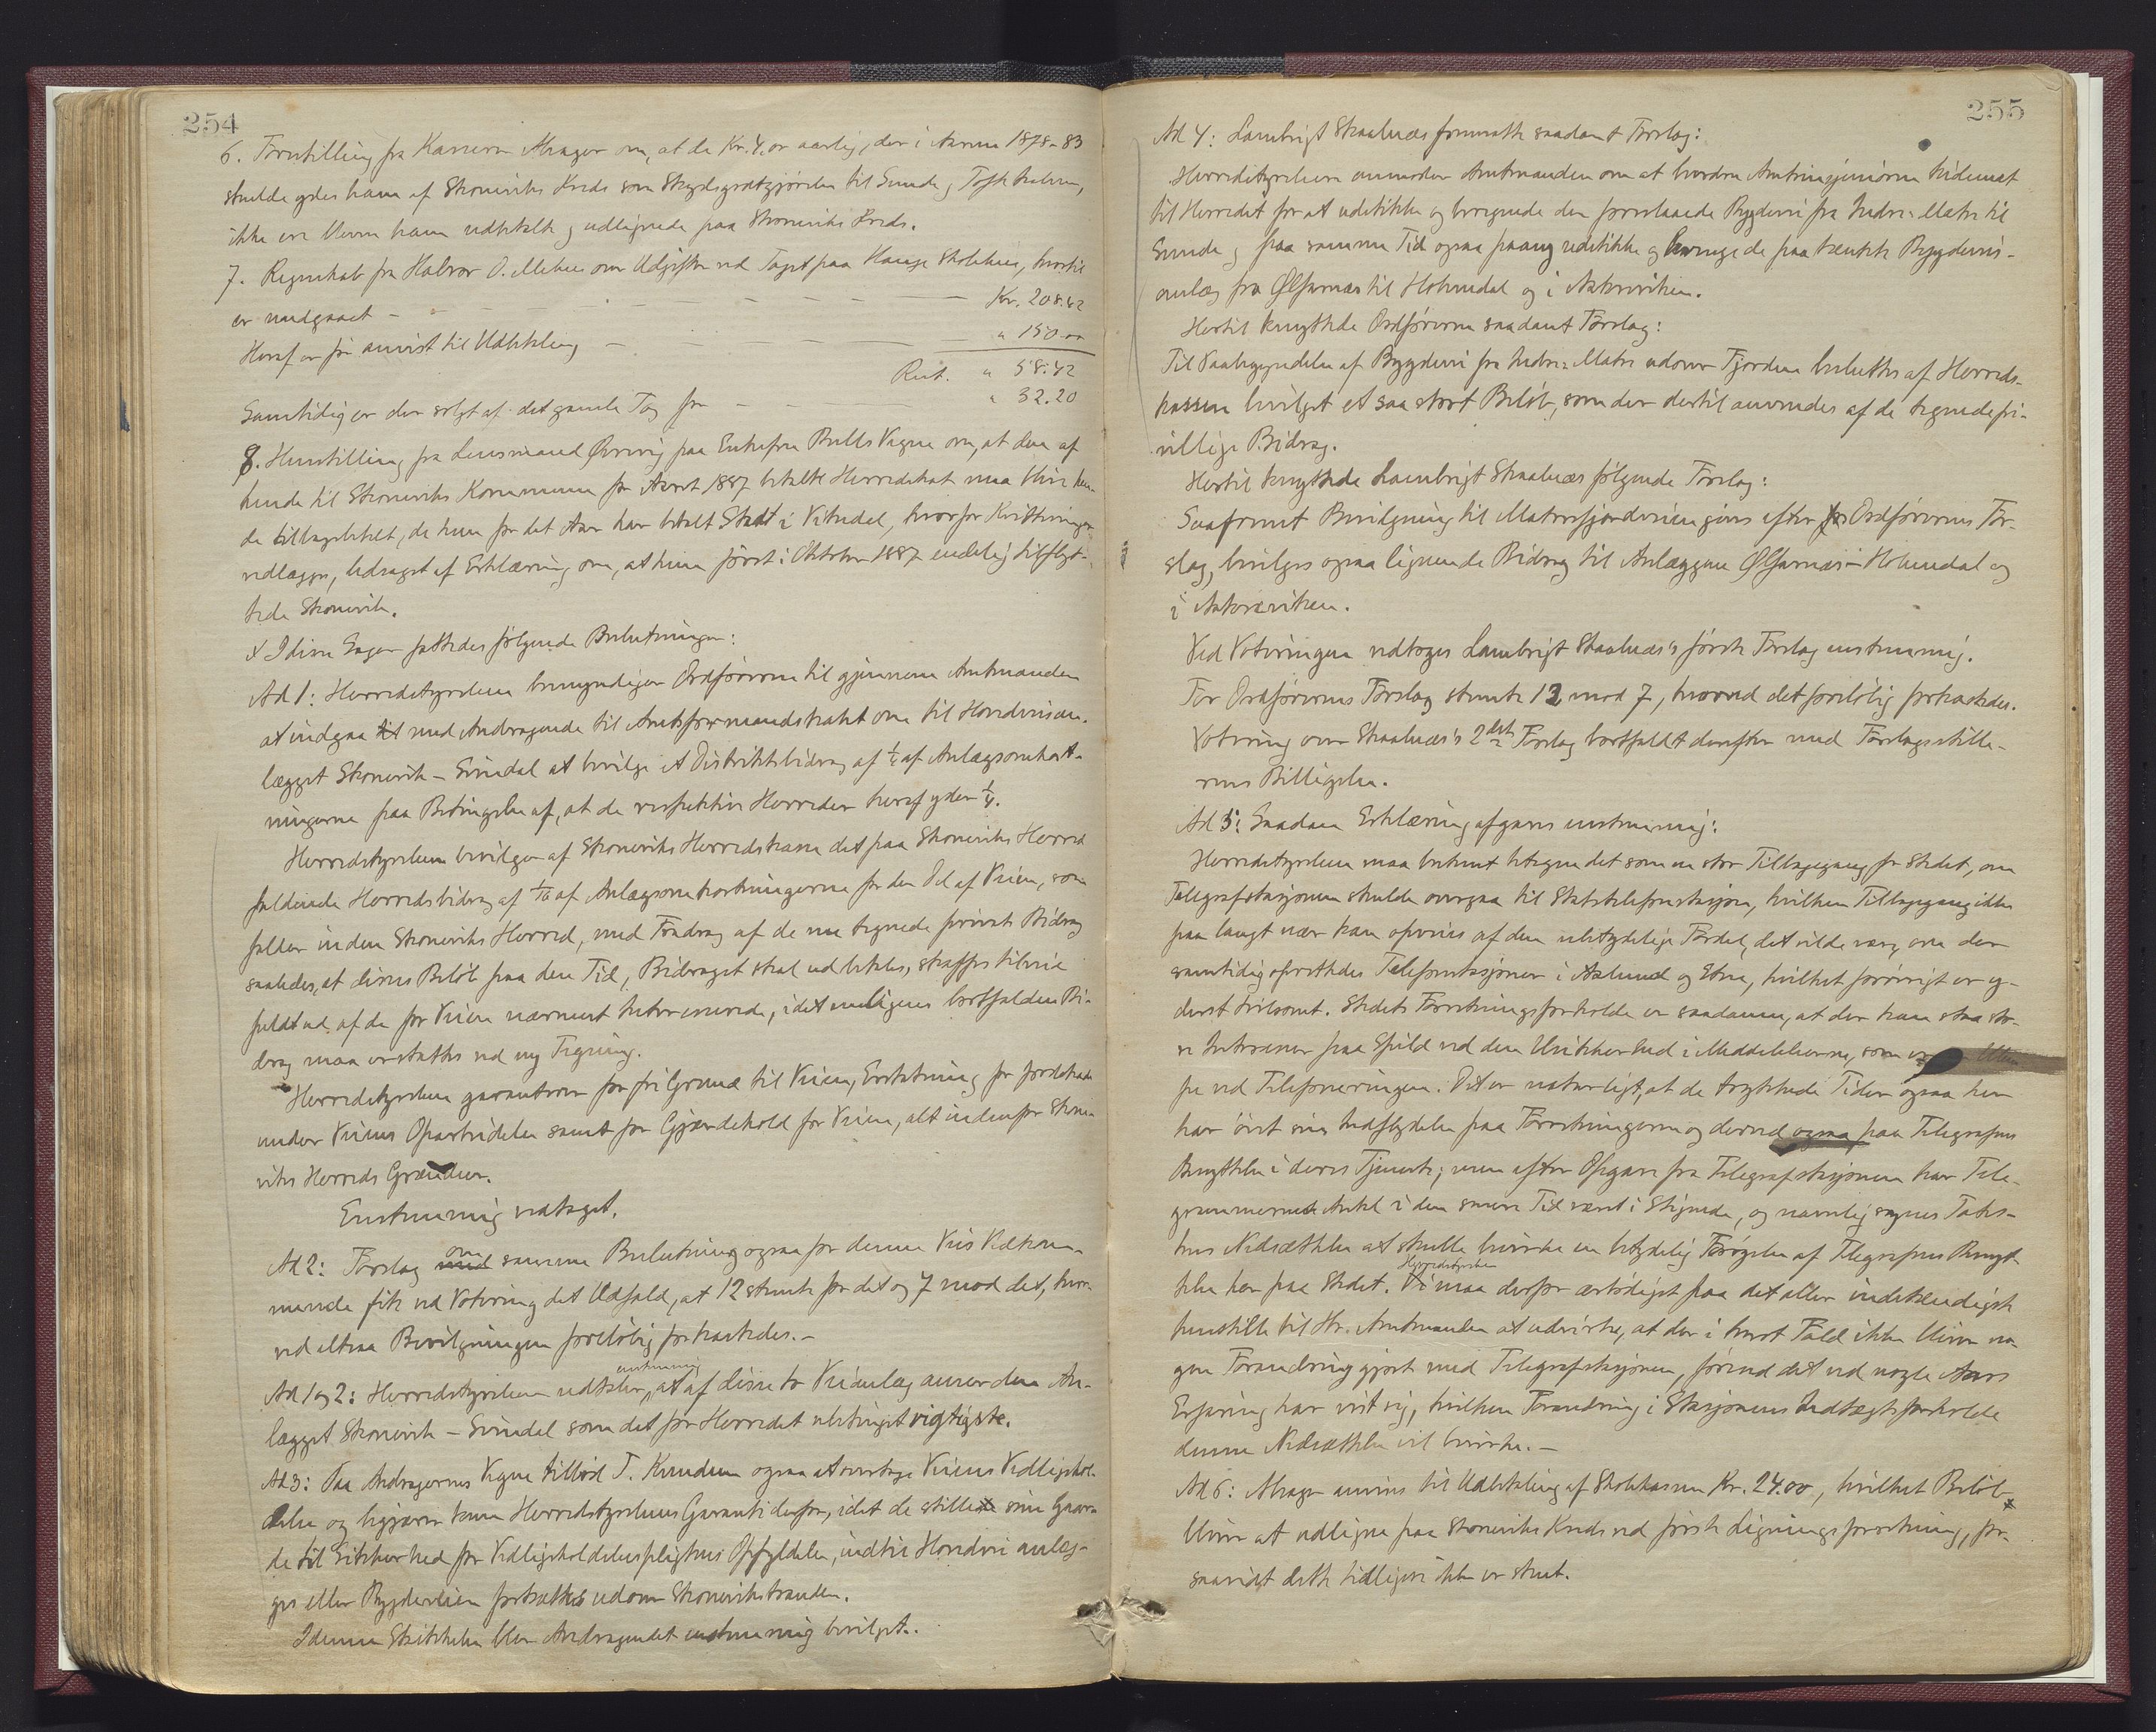 254
6. Forestilling fra Kasserer Alsager om, at de Kr. 4,00 aarlig, der i Aarene 1878-83
skulde ydes ham af Skoneviks Kreds som Skydsgodtgjørelse til Sunde, Tofte
ikke ere blevne ham udbetalte og udlignede paa Skoneviks Kreds.
7. Regnskab fra Halvor O. Mehus over Udgifter ved Taget paa Hauge Skolehus, hvortil
er medgaaet - - - - - - Kr. 208.42
Heraf er før anvist til Udbetaling - - - " 150.00
Rest. " 58.42
Samtidig er der solgt af det gamle Tag for - - - " 32.20
8. Henstilling fra Lensmand Qvrivig paa Enkefru Bulls Vegne om, at den af
hende til Skoneviks Kommune for Aaret 1887 betalte Herredsskat maa blive hen-
de tilbagebetalt, da hun for det Aar har betalt Skat i Vikedal, hvorfor Kvitteringer
vedlægges, ledsaget af Erklæring om, at hun først i Oktober 1887 endelig tilflyt-
tede Skonevik.
I disse Sager fattedes følgende Beslutninger:
Ad 1: Herredsstyrelsen bemyndiger Ordføreren til gjennem Amtmanden
at indgaa til med Andragende til Amtsformandskabet om til Hovedveian-
lægget Skonevik - Evindal at bevilge et Distriktsbidrag af 1/4 af Anlægsomkost-
ningerne paa Betingelse af, at de respektive Herreder heraf yder 1/4.
Herredsstyrelsen bevilger af Skoneviks Herredskasse det paa Skoneviks Herred
faldende Herredsbidrag af 1/16 af Anlægsomkostningerne for den Del af Veien, som
falder inden Skoneviks Herred, med Fradrag af de nu tegnede private Bidrag
saaledes, at disses Beløb paa den Tid, Bidraget skal udbetales, skaffes tilveie
fuldt ud af de for Veien nærmest Interesserede, idet muligens bortfaldne Bi-
drag maa erstattes ved ny Tegning.
Herredsstyrelsen garanterer for fri Grund til Veien, Erstatning for Jordskade
under Veiens Oparbeidelse samt for Gjærdehold for Veien, alt indenfor Skone-
viks Herreds Grændser.
Enstemmig vedtaget.
Ad 2: Forslag med om samme Beslutning ogsaa for denne Veis Vedkom-
mende fik ved Votering det Udfald, at 12 stemte for det og 7 mod det, hvor-
ved altsaa Bevilgningen foreløbig forkastedes.-
Ad 1 og 2: Herredsstyrelsen udtaler enstemmig, at af disse to Veianlæg ansees den An-
lægget Skonevik - Evindal som det for Herredet ubetinget vigtigste.
Ad 3: Paa Andragernes Vegne tilbød T. Kundsen ogsaa at overtage Veiens Vedligehol-
delse og begjærer kun Herredsstyrelsens Garanti derfor, idet de stillede sine Gaar-
de til Sikkerhed for Vedligeholdelsespligtens Opfyldelse, indtil Hovedvei anlæg-
ges eller Bygdeveien fortsættes udover Skonevikstranden.
I denne Skikkelse blev Andragendet enstemmig bevilget.
255
Ad 4: Lambrigt Skaalnæs fremsatte saadant Forslag:
Herredsstyrelsen anmoder Amtmanden om at beordre Amtsingeniøren hidsendt
til Herredet for at udstikke og beregne den foreslaaede Bygdevei fra Indre-Matre til
Sunde og paa samme Tid ogsaa paany udstikke og beregne de paatænkte Bygdeveis-
anlæg fra Ølfarnæs til Holmedal og i Aakreviken.
Hertil knyttede Ordføreren saadant Forslag:
Til Paabegyndelse af Bygdevei fra Indre-Matre udover Fjorden besluttes af Herreds-
kassen bevilget et saa stort Beløb, som der dertil anvendes af de tegnede fri-
villige Bidrag.
Hertil knyttede Lambrigt Skaalnæs følgende Forslag:
Saafremt Bevilgning til Matrefjordveien gives efter Ordførerens For-
slag, bevilges ogsaa lignende Bidrag til Anlæggene Ølfarnæs - Holmedal og
i Aakreviken.
Ved Voteringen vedtoges Lambrigt Skaalnæs's første Forslag enstemmig.
For Ordførerens Forslag stemte 12 mod 7, hvorved det foreløbig forkastedes.
Votering over Skaalnæs's 2det Forslag bortfaldt derefter med Forslagsstille-
rens Billigelse.
Ad 5: Saadan Erklæring afgaves enstemmig:
Herredsstyrelsen maa bestemt betegne det som en stor Tilbagegang for Stedet, om
Telegrafstasjonen skulde overgaa til Statstelefonstasjon, hvilken Tilbagegang ikke
paa langt nær kan opveies af den ubetydelige Fordel, det vilde være, om der
samtidig oprettedes Telefonstasjoner i Ølen og Etne, hvilket forøvrigt er y-
derst tvilsomt. Stedets Forretningsforholde er saadanne, at der kan staa sto-
re Interesser paa Spild ved den Usikkerhed i Meddelelserne, som er
pe ved Telefoneringen. Det er naturligt, at de trykkede Tider ogsaa her
har øvet sin Indflydelse paa Forretningerne og derved ogsaa paa Telegrafens
Benyttelse i deres Tjeneste; men efter Opgave fra Telegrafstasjonen har Tele-
grammernes Antal i den senere Tid været i Stigende, og navnlig synes Taks-
tens Nedsættelse at skulle bevirke en betydelig Forøgelse af Telegrafens Benyt-
telse her paa Stedet. Vi Herredsstyrelsen maa derfor ærbødigst paa det aller indstændigste
henstille til Hr. Amtmanden at udvirke, at der i hvert Fald ikke bliver no-
gen Forandring gjort med Telegrafstasjonen, førend det ved nogle Aars
Erfaring har vist sig, hvilken Forandring i Stasjonens Indtægtsforholde
denne Nedsættelse vil bevirke.-
Ad 6: Alsager anvises til Udbetaling af Skolekassen Kr. 24.00, hvilket Beløb
bliver at udligne paa Skoneviks Kreds ved første Ligningsforretning, for-
saavidt dette tidligere ikke er skeet.